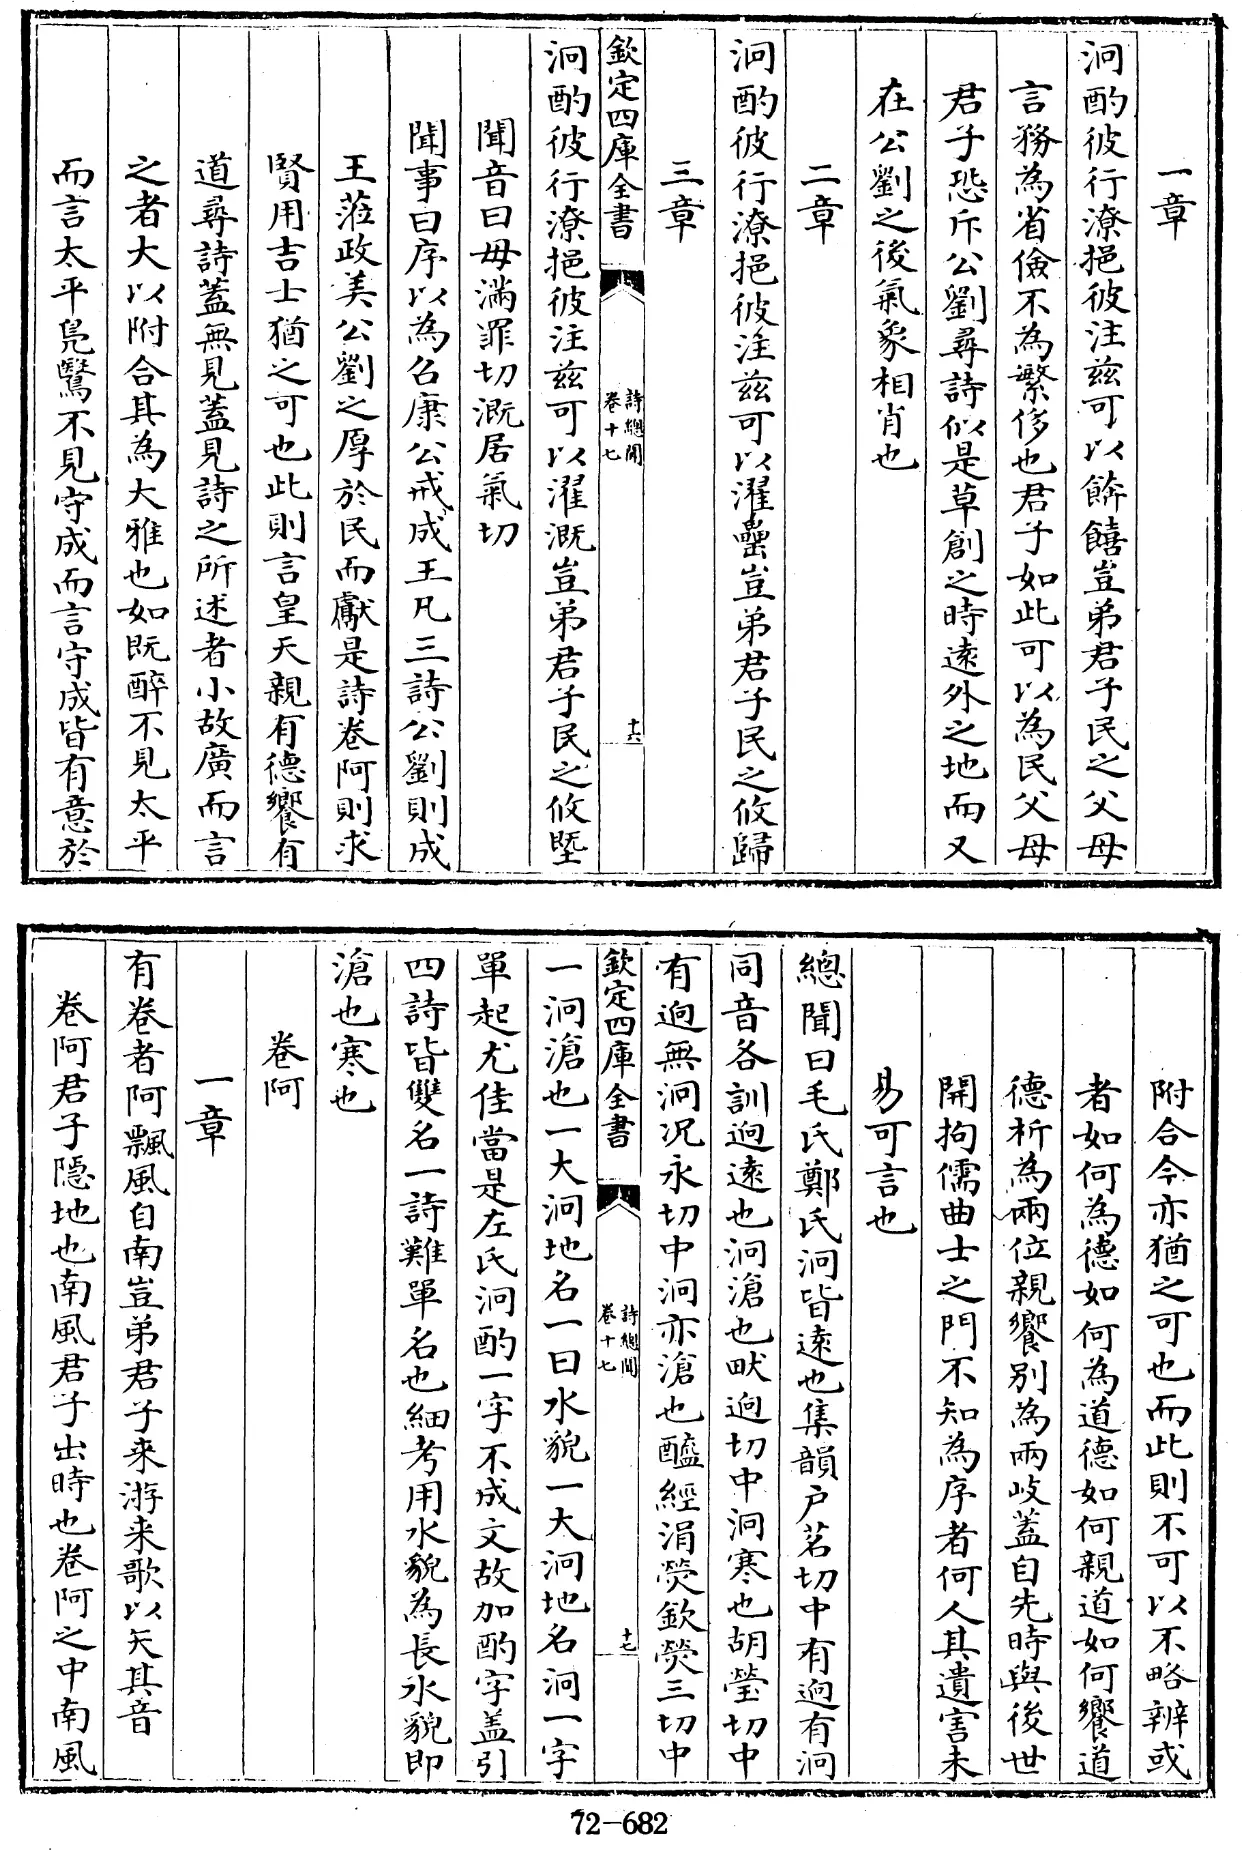 一章
泂酌彼行潦挹彼注兹可以餴饎豈弟君子民之父母
言務為省儉不為繁侈也君子如此可以為民父母
君子恐斥公劉尋詩似是草創之時遠外之地而又
在公劉之後氣象相肖也
二章
泂酌彼行潦挹彼注兹可以濯罍豈弟君子民之攸歸
三章
欽定四庫全書
詩總聞
卷十七
十六
泂酌彼行潦挹彼注兹可以濯溉豈弟君子民之攸塈
聞音曰毋滿罪切溉居氣切
聞事曰序以為召康公戒成王凡三詩公劉則成
王蒞政美公劉之厚於民而獻是詩卷阿則求
賢用吉士猶之可也此則言皇天親有德饗有
道尋詩蓋無見蓋見詩之所述者小故廣而言
之者大以附合其為大雅也如既醉不見太平
而言太平鳧鷖不見守成而言守成皆有意於
附合今亦猶之可也而此則不可以不略辨或
者如何為德如何為道德如何親道如何饗道
德析為兩位親饗别為兩岐蓋自先時與後世
開拘儒曲士之門不知為序者何人其遺害未
易可言也
總聞曰毛氏鄭氏泂皆遠也集韻户茗切中有迥有泂
同音各訓迥遠也泂滄也畎迥切中泂寒也胡瑩切中
有迥無泂况永切中泂亦滄也醯經涓熒欽熒三切中
欽定四庫全書
詩總聞
卷十七
十七
一泂滄也一大泂地名一曰水貌一大泂地名泂一字
單起尤佳當是左氏泂酌一字不成文故加酌字盖引
四詩皆雙名一詩難單名也細考用水貌為長水貌即
滄也寒也
卷阿
一章
有卷者阿飄風自南豈弟君子來游来歌以矢其音
卷阿君子隱地也南風君子出時也卷阿之中南風
72-682